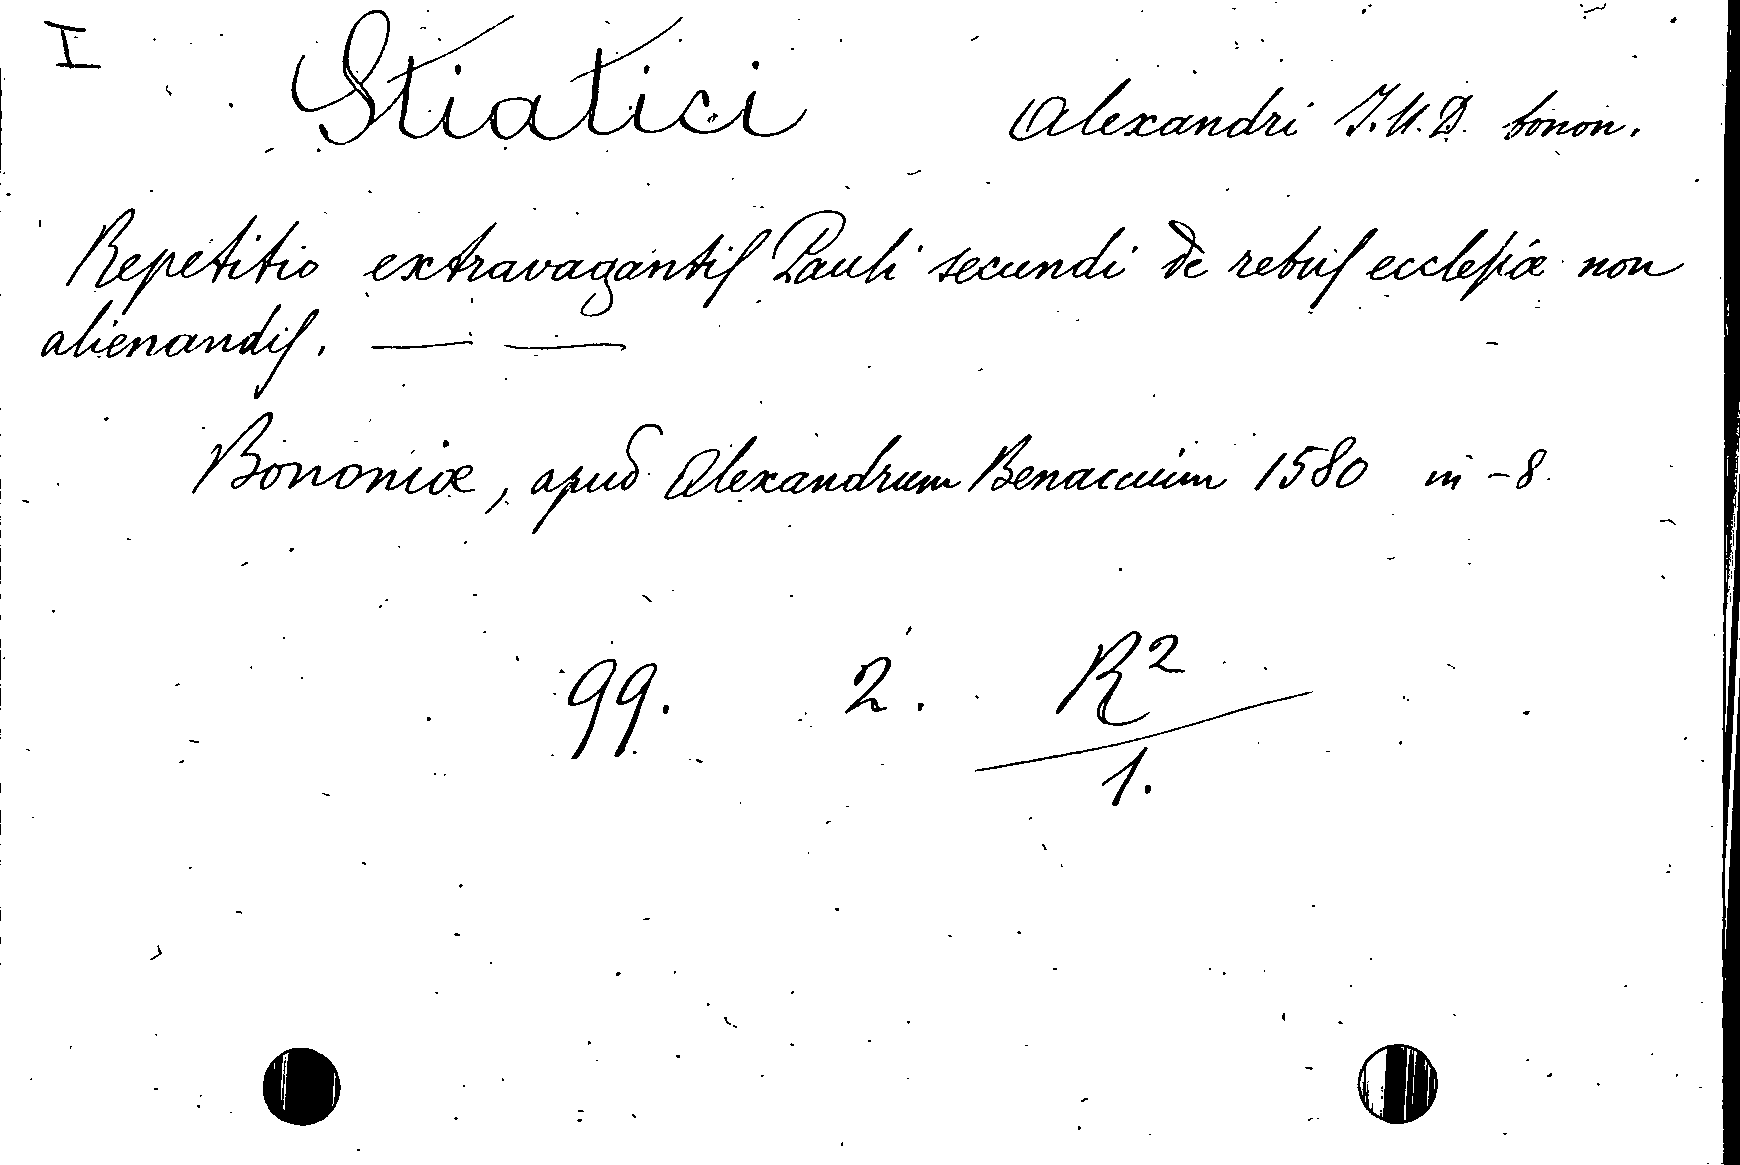 I
Stiatici Alexandri J.U.D. bonon.
Repetitio extravagantis Pauli secundi de rebus ecclesiæ non
alienandis. — —
Bononiæ, apud Alexandrum Benaccium 1580 in-8
99. 2. R²
1.